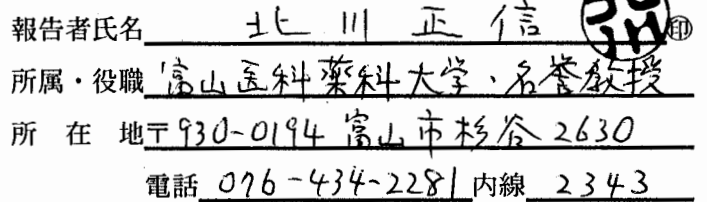 報告者氏名 北川正信 ㊞
所属・役職 富山医科薬科大学・名誉教授
所在地 〒930-0194 富山市杉谷2630
電話 076-434-2281 内線 2343